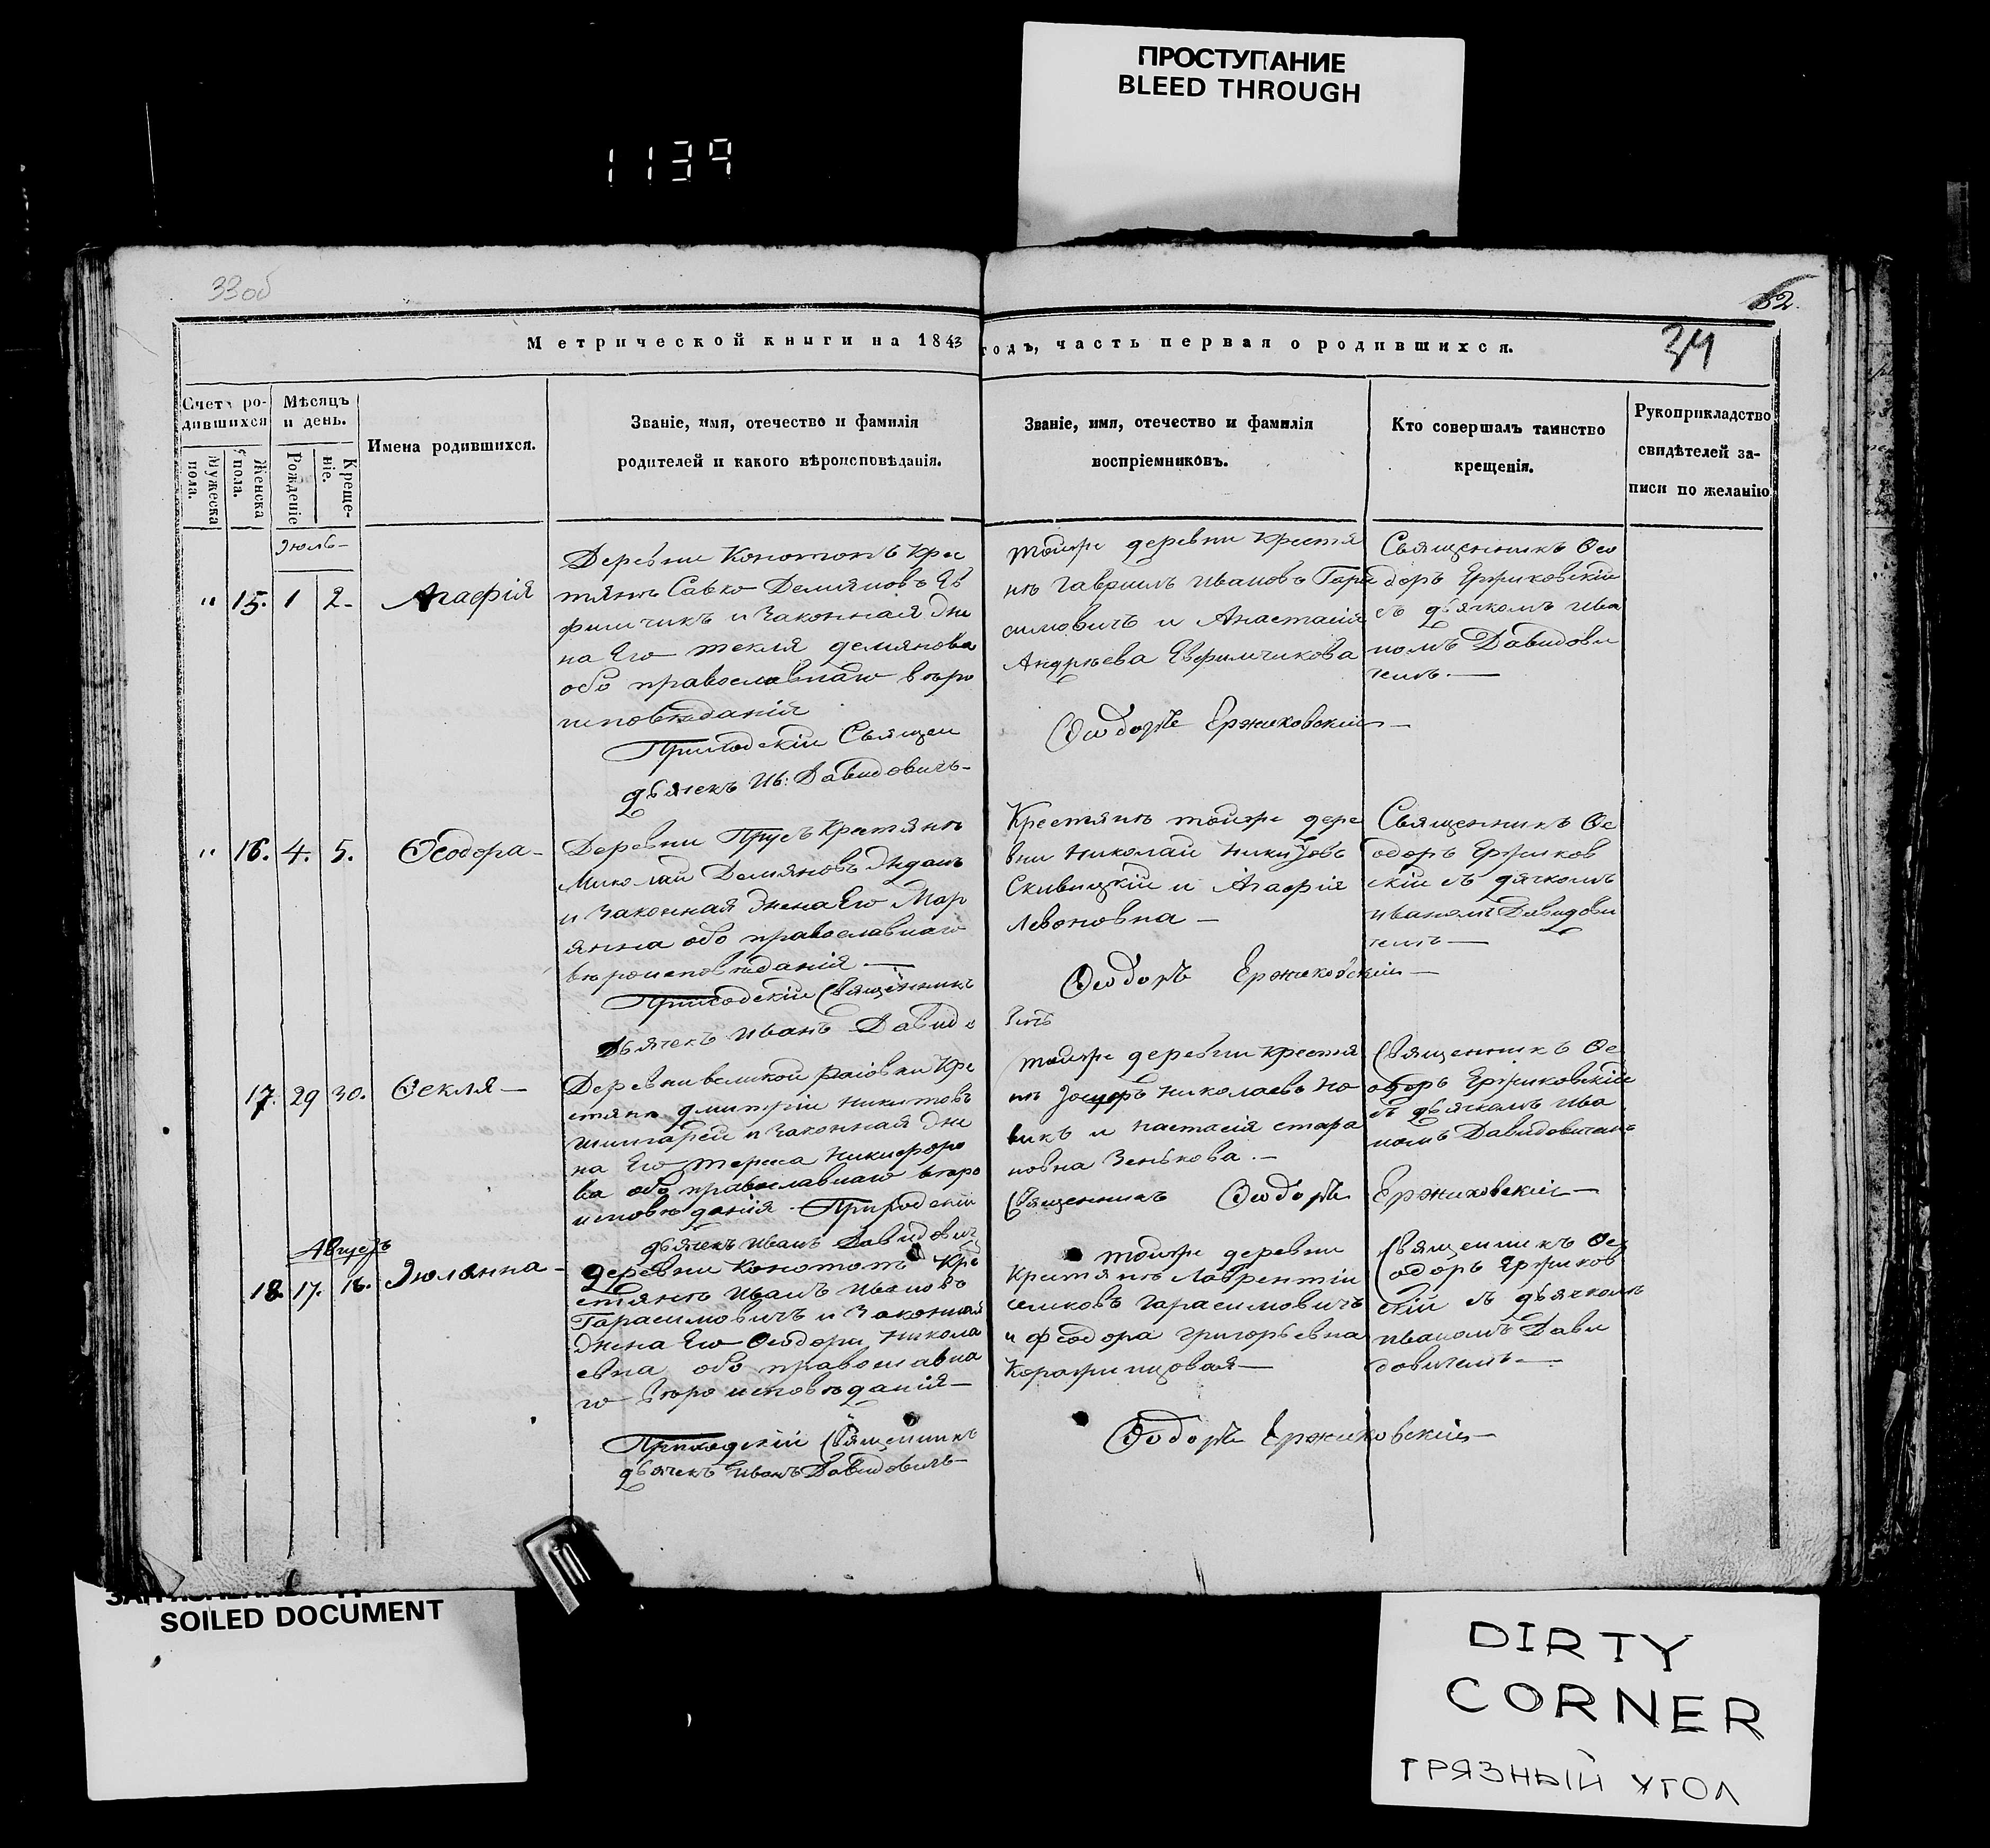 ПРОСТУПАНИЕ
BLEED THROUGH
1139
33об
52.
34
Метрической книги на 1843 годъ, часть первая о родившихся.
Счетъ родившихся
Мужеска пола.
Женска пола.
Мѣсяцъ и день.
Рожденіе
Крещеніе.
Имена родившихся.
Званіе, имя, отечество и фамилія
родителей и какого вѣроисповѣданія.
Званіе, имя, отечество и фамилія
воспріемниковъ.
Кто совершалъ таинство
крещенія.
Рукоприкладство
свидѣтелей за-
писи по желанію
Июль
" 15. 1 2. Агафія
Деревни Конотопъ Крес
тянъ Савко Демяновъ Ев
фимчикъ и Законная Жи
на Его текля демянова
обо православнаго вѣро
исповѣданія
Приходскій Священ
дьячекъ Ив: Давидовичъ
тойже деревни Крестя
нъ Гаврилъ Ивановъ Гара
симовичъ и Анастасія
Андрѣева Евфимчикова
Ѳеодоръ Ержиковскій
Священникъ Ѳео
доръ Ержиковскій
съ дьячкомъ Ива
номъ Давидови
чемъ.
" 16. 4. 5. Ѳеодора
Деревни Прусъ Крестянъ
Миколай Демяновъ
и Законная Жена Его Мар
янна обо православнаго
вѣроисповѣданія
Приходскій Священникъ
Дьячекъ Иванъ Давидо
Крестянъ тойже дере
вни Николай
и Агафія
Левоновна
Ѳеодоръ Ержиковскій
Священникъ Ѳе
одоръ Ержиков
скій съ дячкомъ
Иваномъ Давидови
чемъ
17. 29 30. Ѳекля
Деревни великой раіовки Кре
стянъ дмитрій Никитовъ
и Законная Жи
на Его тереса Никифоро
ва обо православнаго вѣро
исповѣданія Приходскій
дьячекъ Иванъ Давидовичъ
тойже деревни Крестя
нъ Николаевъ Но
викъ и Настасія
Зенькова.
Священникъ Ѳеодоръ Ержиковскій
Священникъ Ѳе
одоръ Ержиковскій
съ дьячкомъ Ива
номъ Давидовичемъ
Августъ
18. 17. 18. Июлянна
деревни Конотопъ Кре
стянъ Иванъ Ивановъ
Гарасимовичъ и Законная
Жена Его Ѳеодора Никола
евна обо православна
го вѣроисповѣданія
Приходскій Священникъ
дьячекъ Иванъ Давидовичъ
тойже деревни
Крестянъ Лаврентій
Гарасимовичъ
и Феодора Григорьевна
Ѳеодоръ Ержиковскій
Священникъ Ѳе
одоръ Ержиков
скій съ дьячкомъ
Иваномъ Дави
довичемъ
SOILED DOCUMENT
DIRTY
CORNER
ГРЯЗНЫЙ УГОЛ